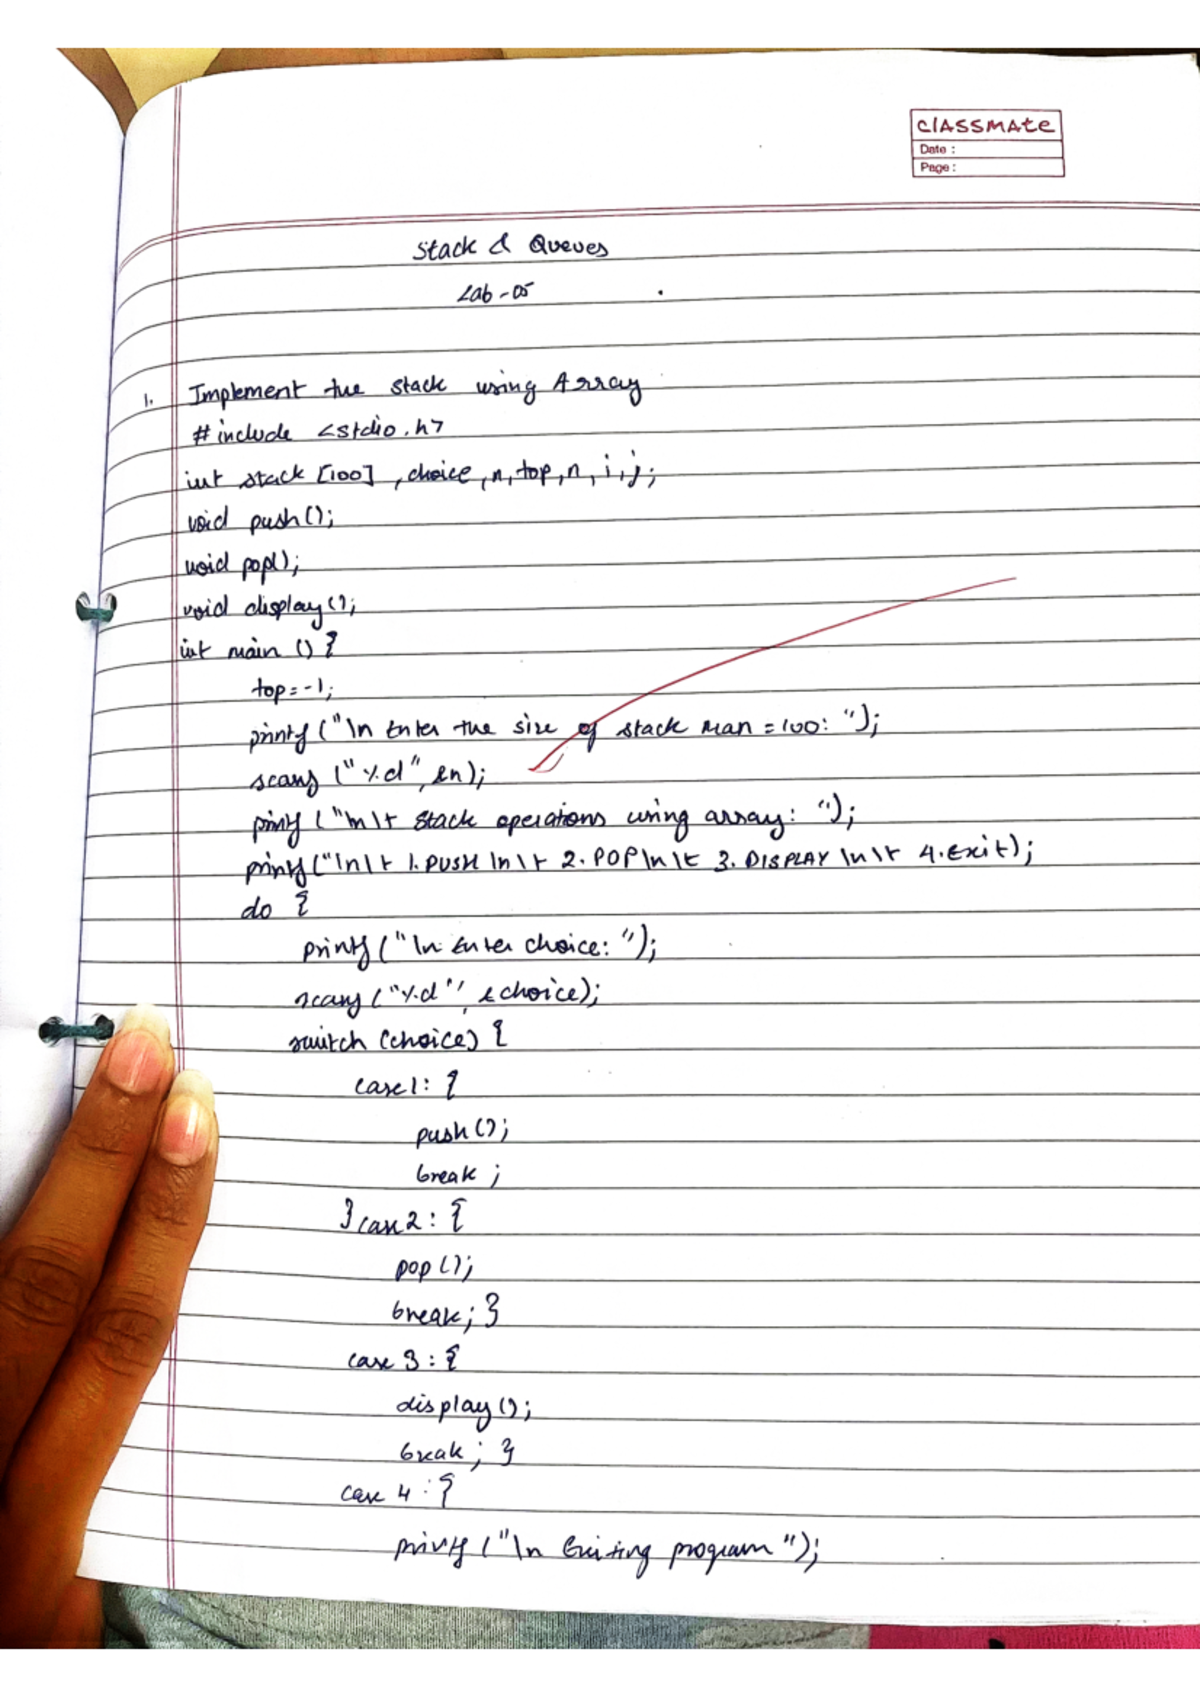 classmate
Date :
Page :
Stack & Queues
Lab-05
1. Implement the stack using Array
#include <stdio.h>
int stack [100], choice, n, top, n, i, j;
void push();
void pop();
void display();
int main () {
top=-1;
printf ("\n Enter the size of stack max=100: ");
scanf ("%d", &n);
printf ("\n\t Stack operations using array: ");
printf ("\n\t 1.PUSH \n\t 2.POP \n\t 3.DISPLAY \n\t 4.Exit);
do {
printf ("\n Enter choice: ");
scanf ("%d", &choice);
switch (choice) {
case 1: {
push ();
break ;
} case 2 : {
pop ();
break; }
case 3 : {
display ();
break ; }
case 4 : {
printf ("\n Exiting program ");